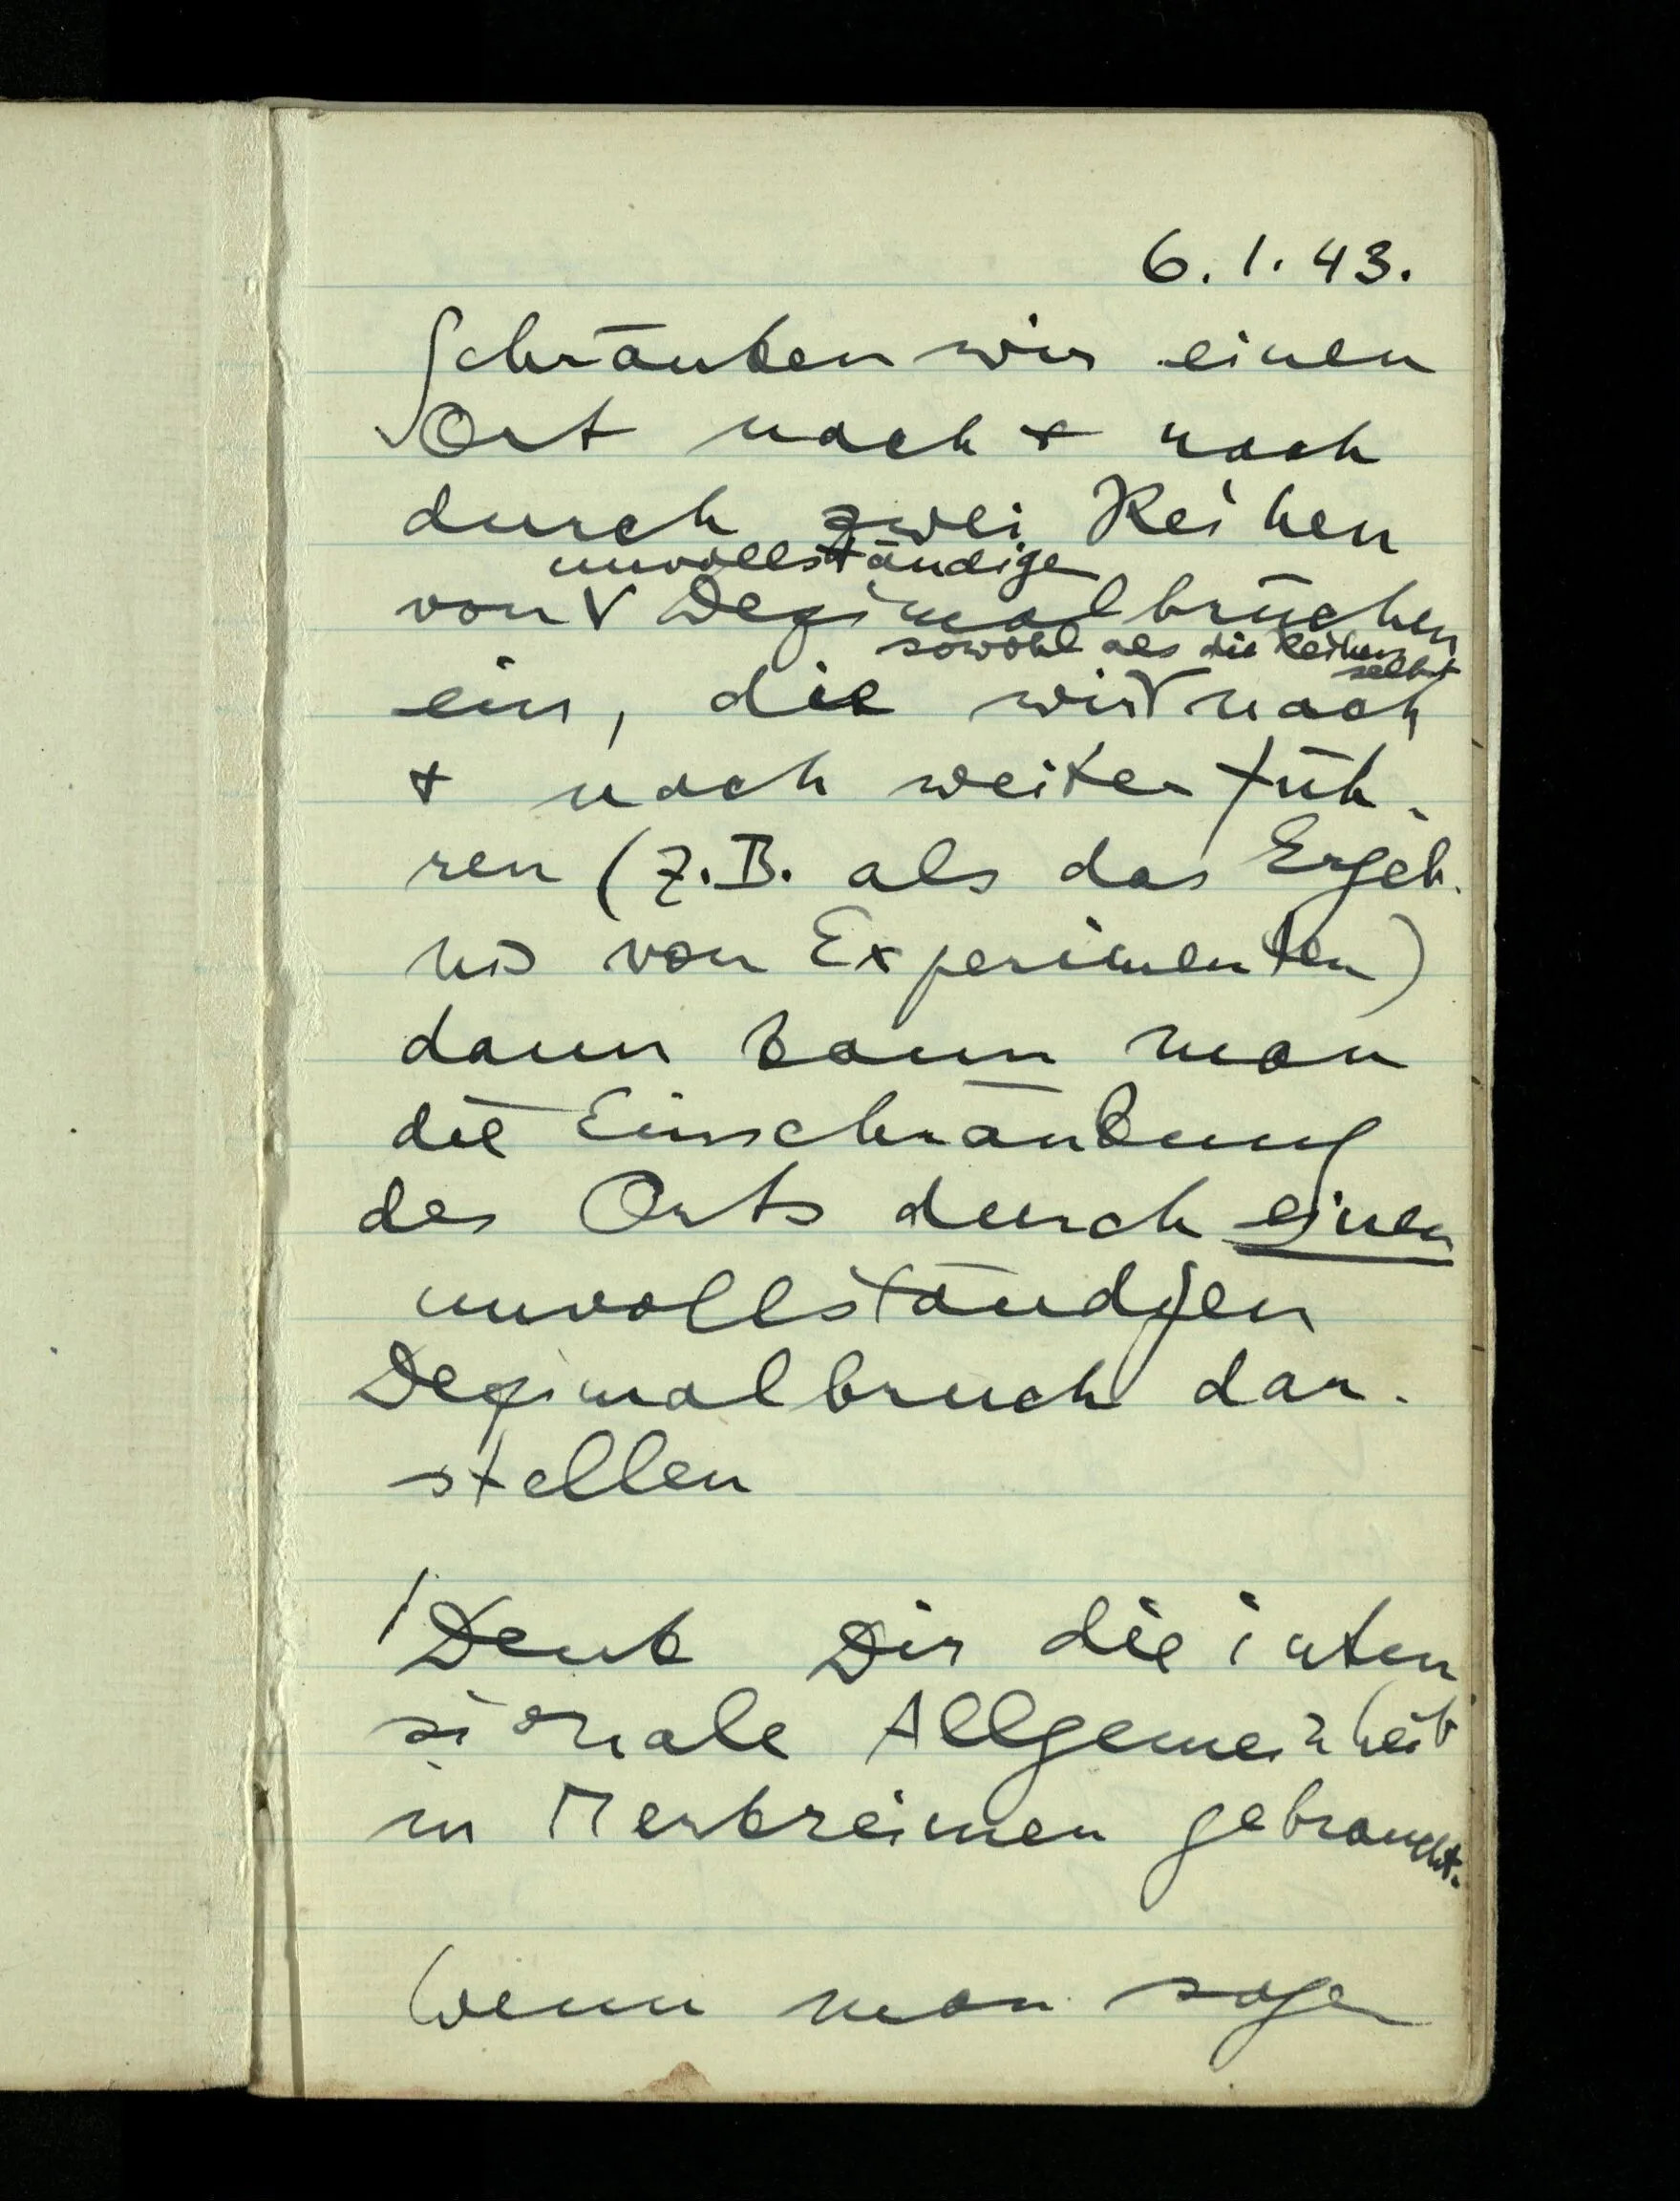 6. 1. 43.
Schränken wir einen
Ort nach + nach
durch zwei Reihen
unvollständige
von V Dezimalbrüchen
sowohl als die Reihen
selbst
ein, die wir V nach
+ nach weiter füh-
ren (z.B. als das Ergeb-
nis von Experimenten)
dann kann man
die Einschränkung
des Orts durch einen
unvollständigen
Dezimalbruch dar-
stellen
/ Denk Dir die inten
sionale Allgemeinheit
in Merkreimen gebraucht.
Wenn man sagen